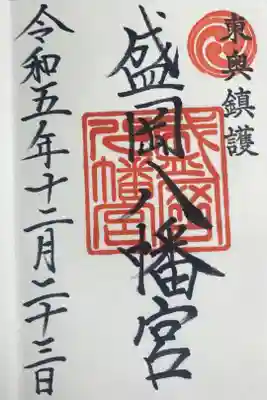 東奥鎮護
盛岡八幡宮
盛岡
八幡宮
令和五年十二月二十三日